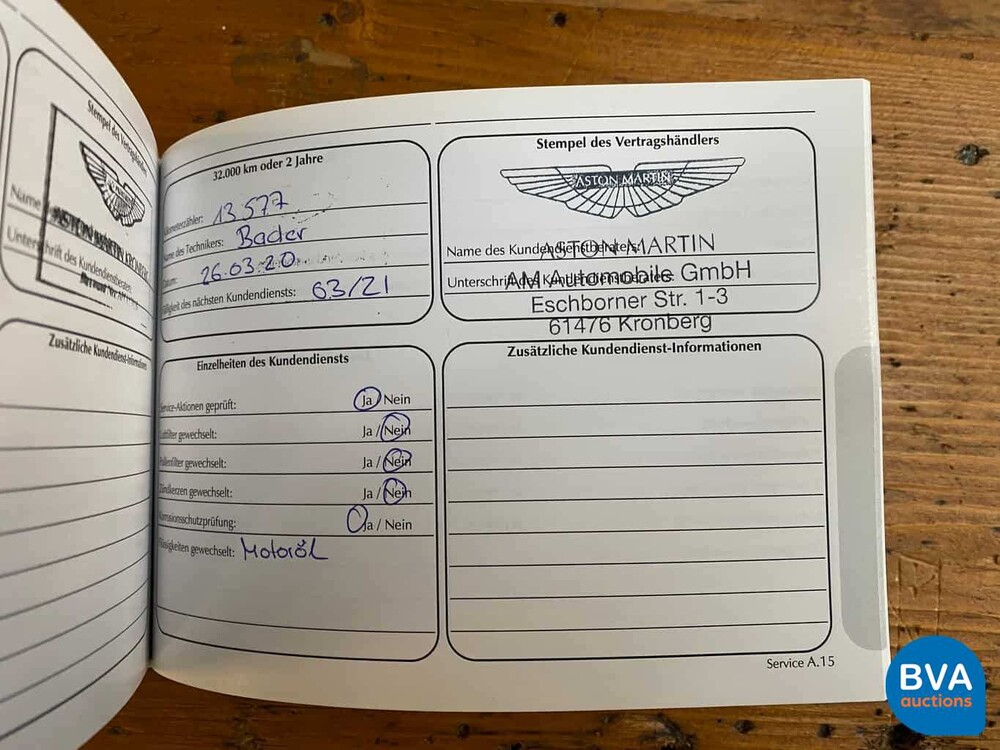 Stempel des Vertragshändlers
Name
ASTON MARTIN KRONBERG
Unterschrift des Kundendienstberaters:
Zusätzliche Kundendienst-Informationen
32.000 km oder 2 Jahre
Kilometerzähler: 13.577
Name des Technikers: Bader
Datum: 26.03.20
Fälligkeit des nächsten Kundendiensts: 03/21
Stempel des Vertragshändlers
ASTON MARTIN
Name des Kundendienstberaters:
ASTON MARTIN
Unterschrift des Kundendienstberaters:
AM Automobile GmbH
Eschborner Str. 1-3
61476 Kronberg
Einzelheiten des Kundendiensts
Service-Aktionen geprüft: Ja / Nein
Luftfilter gewechselt: Ja / Nein
Pollenfilter gewechselt: Ja / Nein
Zündkerzen gewechselt: Ja / Nein
Korrosionsschutzprüfung: Ja / Nein
Flüssigkeiten gewechselt: Motoröl
Zusätzliche Kundendienst-Informationen
Service A.15
BVA
auctions